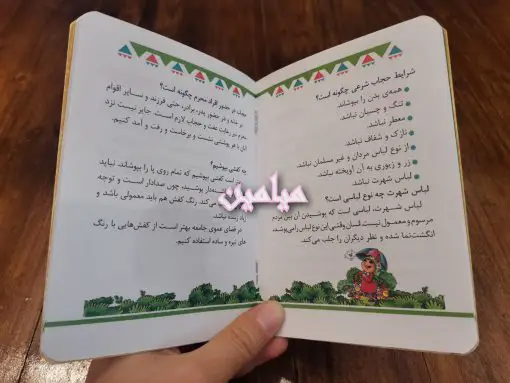 شرایط حجاب شرعی چگونه است؟
همه‌ی بدن را بپوشاند.
تنگ و چسبان نباشد.
معطر نباشد.
نازک و شفاف نباشد.
از نوع لباس مردان و غیر مسلمان نباشد.
زر و زیوری به آن آویخته نباشد.
لباس شهرت نباشد.
لباس شهرت چه نوع لباسی است؟
لباس شهرت، لباسی است که پوشیدن آن بین مردم
مرسوم و معمول نیست. انسان وقتی این نوع لباس را می‌پوشد،
انگشت‌نما شده و نظر دیگران را جلب می‌کند.
حجاب در حضور افراد محرم چگونه است؟
در خانه و در حضور پدر، برادر، حتی فرزند و سایر اقوام
محرم نیز رعایت عفت و حجاب لازم است. جایز نیست نزد
آنان در پوشش نشست و برخاست و رفت و آمد کنیم.
چه کفشی بپوشیم؟
است کفشی بپوشیم که تمام روی پا را بپوشاند. نباید
پوشید، چون صدادار است و توجه
می‌کند. رنگ کفش هم باید معمولی باشد و
زننده نباشد.
در فضای عموی جامعه بهتر است از کفش‌هایی با رنگ
های تیره و ساده استفاده کنیم.
میامین